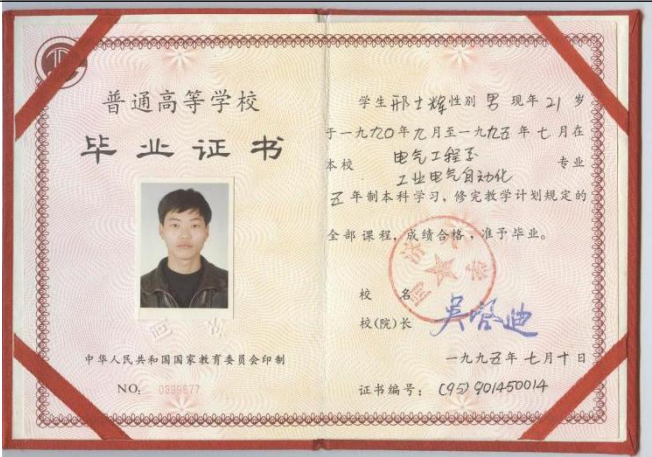 普通高等学校
毕业证书
中华人民共和国国家教育委员会印制
NO. 0339677
学生邢士辉性别 男 现年 21 岁
于一九九0年九月至一九九五年七月在
本校 电气工程系
工业电气自动化 专业
五年制本科学习，修完教学计划规定的
全部课程，成绩合格，准予毕业。
校 名
校(院)长 吴启迪
一九九五年七月十日
证书编号： (95) 901450014